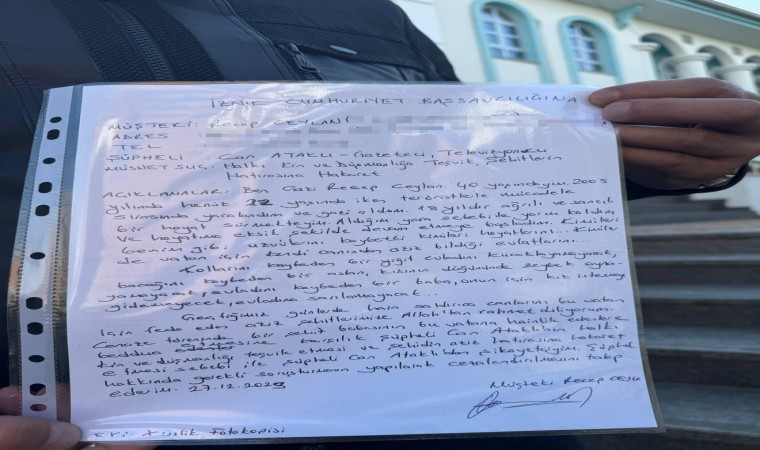 İZNİK CUMHURİYET BAŞSAVCILIĞINA
MÜŞTEKİ: Recep CEYLAN(
ADRES :
TEL
ŞÜPHELİ : Can ATAKLI - Gazeteci, Televizyoncu
MÜSNET SUÇ: Halkı Kin ve Düşmanlığa Teşvik, Şehitlerin
Hatırasına Hakaret
AÇIKLAMALAR: Ben Gazi Recep Ceylan. 40 yaşındayım. 2005
yılında henüz 22 yaşında iken teröristlerle mücadele
sırasında yaralandım ve gazi oldum. 18 yıldır ağrılı ve sancılı
bir hayat sürmekteyim. Aldığım yara sebebi ile yarım kaldım
ve hayatıma eksik şekilde devam etmeye başladım. Kimileri
benim gibi uzuvlarını kaybetti kimileri hayatlarını... Kimileri
de vatan için kendi canından aziz bildiği evlatlarını...
Kollarını kaybeden bir yiğit evladını kucaklayamayacak,
bacağını kaybeden bir aslan, kızının düğününde zeybek oyna-
yamayacak, evladını kaybeden bir baba, onun için kız istemeye
gidemeyecek, evladına sarılamayacak...
Geçtiğimiz günlerde hain saldırıda canlarını bu vatan
için feda eden aziz şehitlerimize Allah'tan rahmet diliyorum.
Cenaze töreninde bir şehit babasının bu vatana hainlik edenlere
beddua etmesine karşılık şüpheli Can Ataklı'nın halkı
kin ve düşmanlığı teşvik etmesi ve şehidin aziz hatırasına hakaret
etmesi sebebi ile şüpheli Can Ataklı'dan şikayetçiyim. Şüpheli
hakkında gerekli soruşturmanın yapılarak cezalandırılmasını talep
ederim. 27.12.2023
Müşteki Recep CEYLAN
EK: Kimlik Fotokopisi